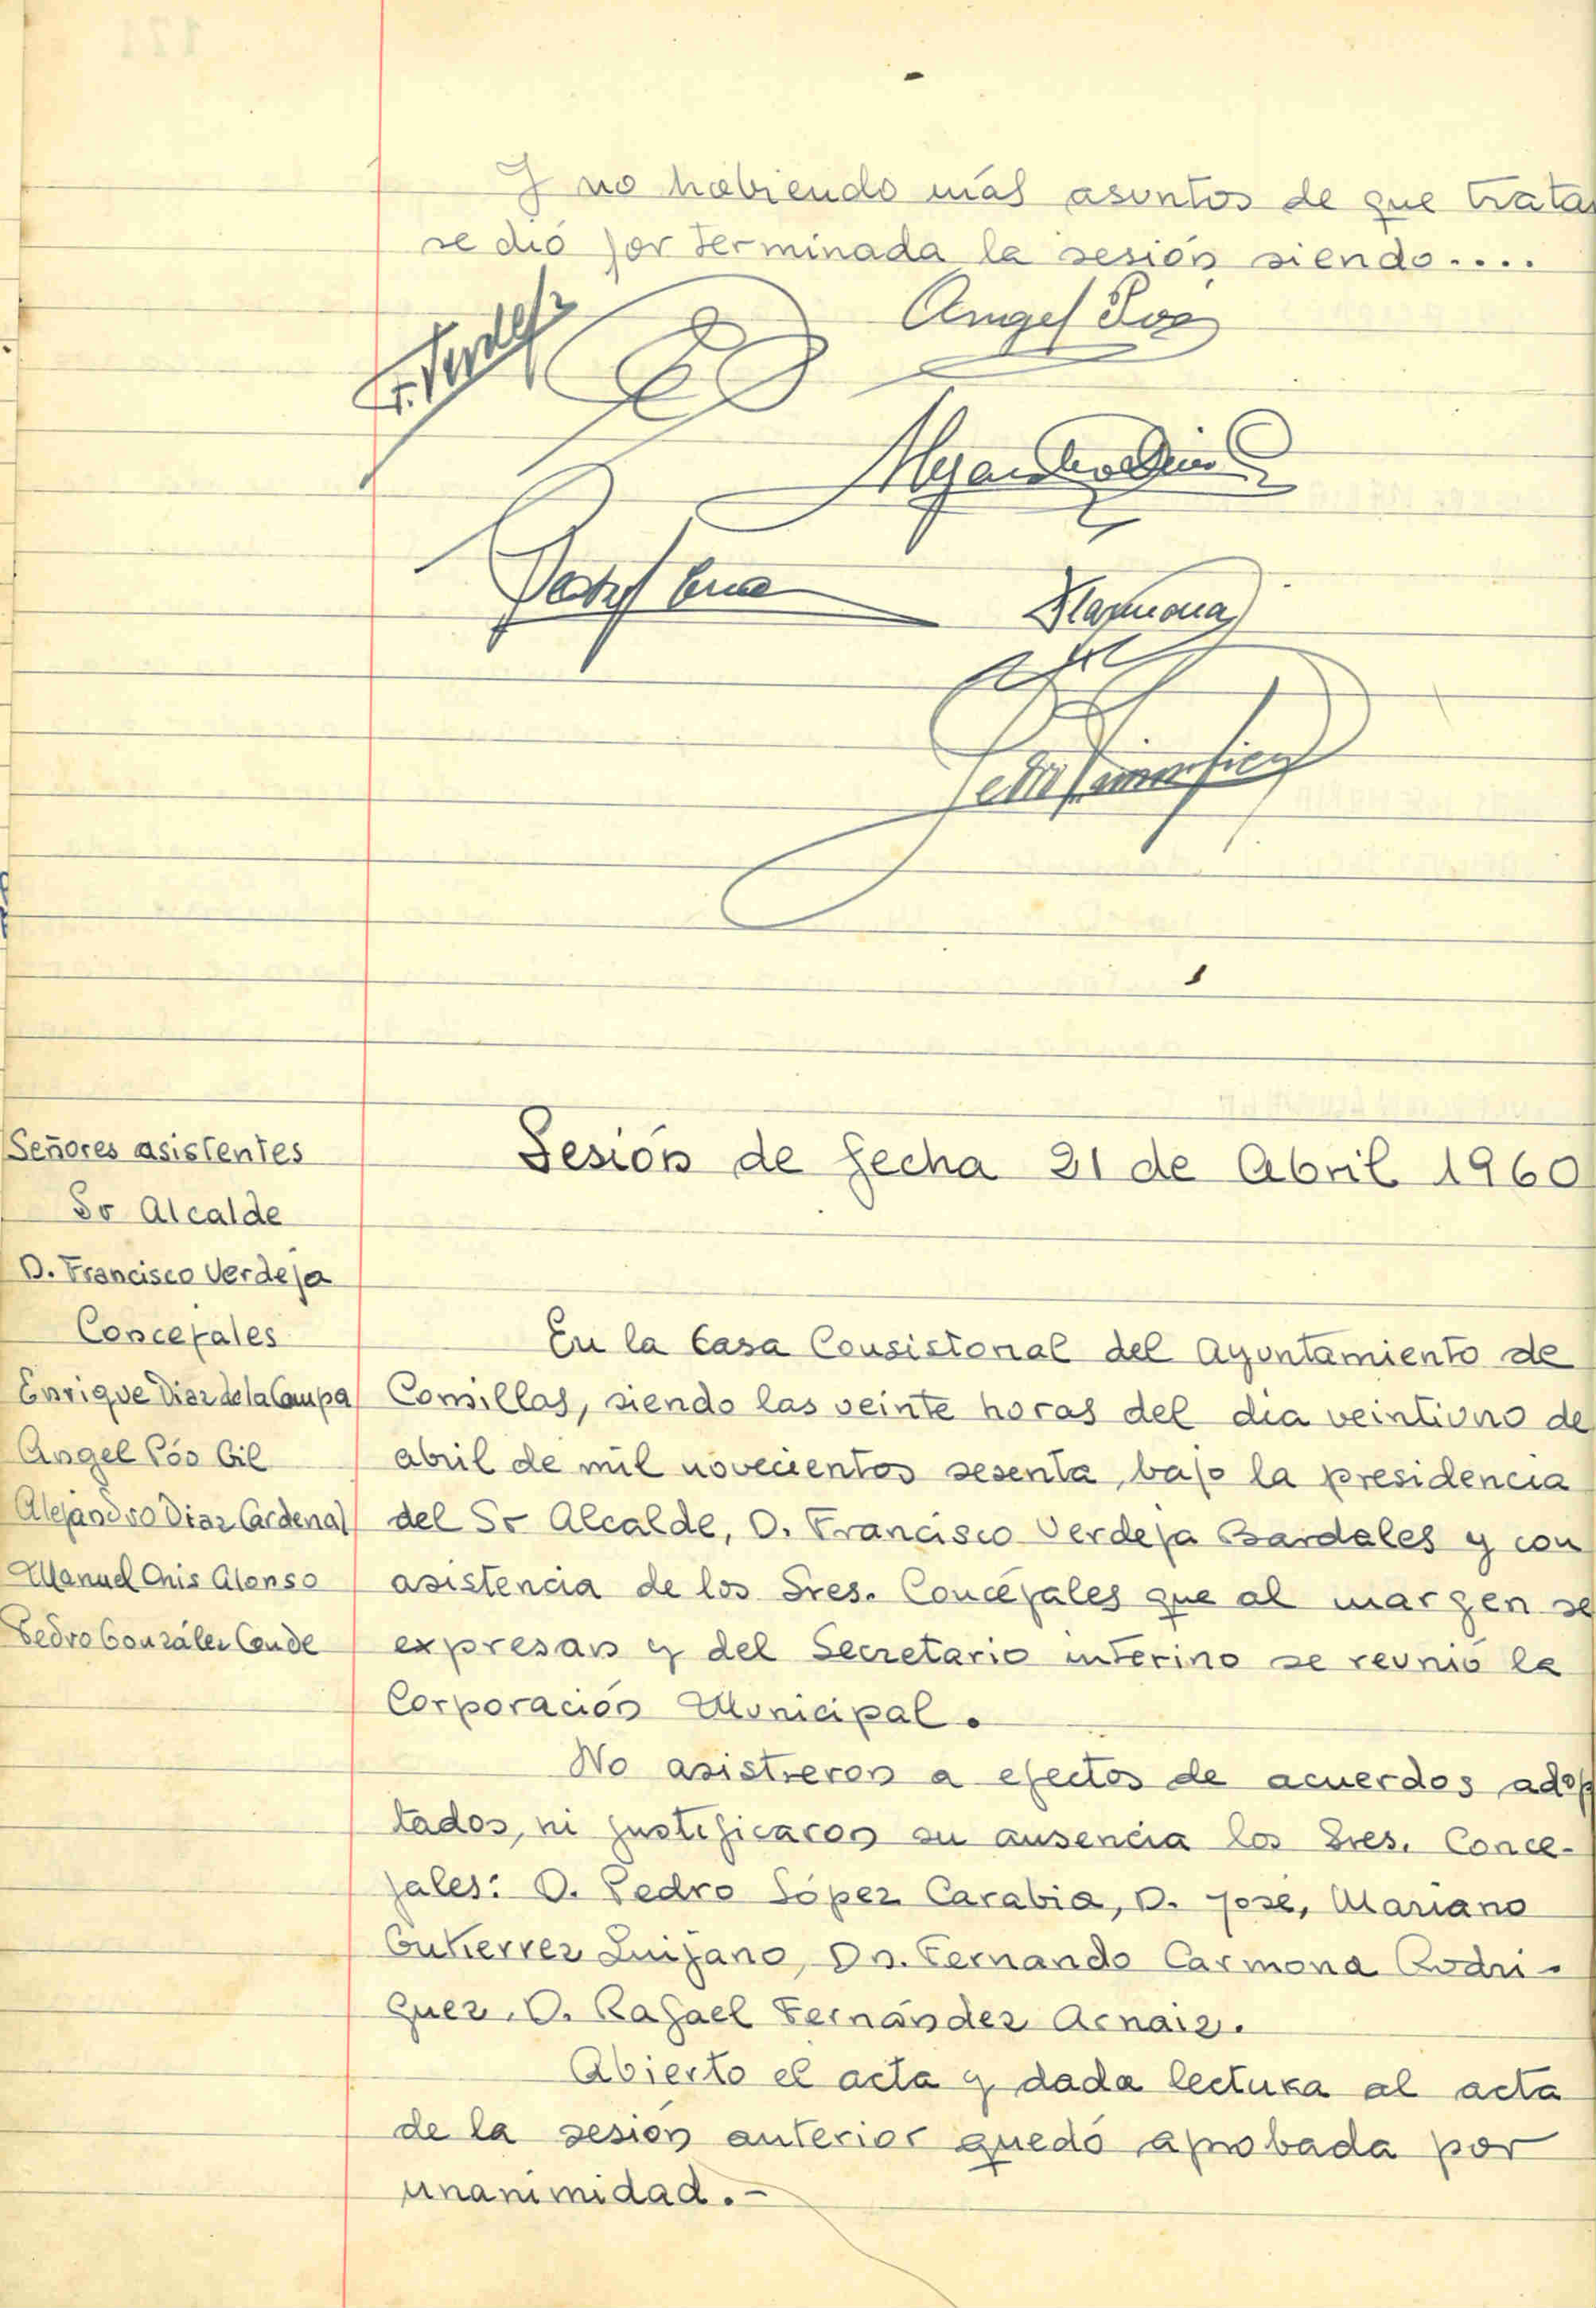 Y no habiendo más asuntos de que tratar
se dió por terminada la sesión siendo....
Angel Pos
Señores asistentes
Sr Alcalde
D. Francisco Verdeja
Concejales
Enrique Diaz de la Campa
Angel Pós Gil
Alejandro Diaz Cardenal
Manuel Onis Alonso
Pedro González Conde
Sesión de fecha 21 de Abril 1960
En la Casa Consistorial del Ayuntamiento de
Comillas, siendo las veinte horas del dia veintiuno de
abril de mil novecientos sesenta, bajo la presidencia
del Sr Alcalde, D. Francisco Verdeja Bardales y con
asistencia de los Sres. Concejales que al margen se
expresan y del Secretario interino se reunió la
Corporación Municipal.
No asistieron a efectos de acuerdos adop
tados, ni justificaron su ausencia los Sres. Conce-
jales: D. Pedro López Carabia, D. José, Mariano
Gutierrez Quijano, Dn. Fernando Carmona Rodri-
guez, D. Rafael Fernández Arnaiz.
Abierto el acta y dada lectura al acta
de la sesión anterior quedó aprobada por
unanimidad.-